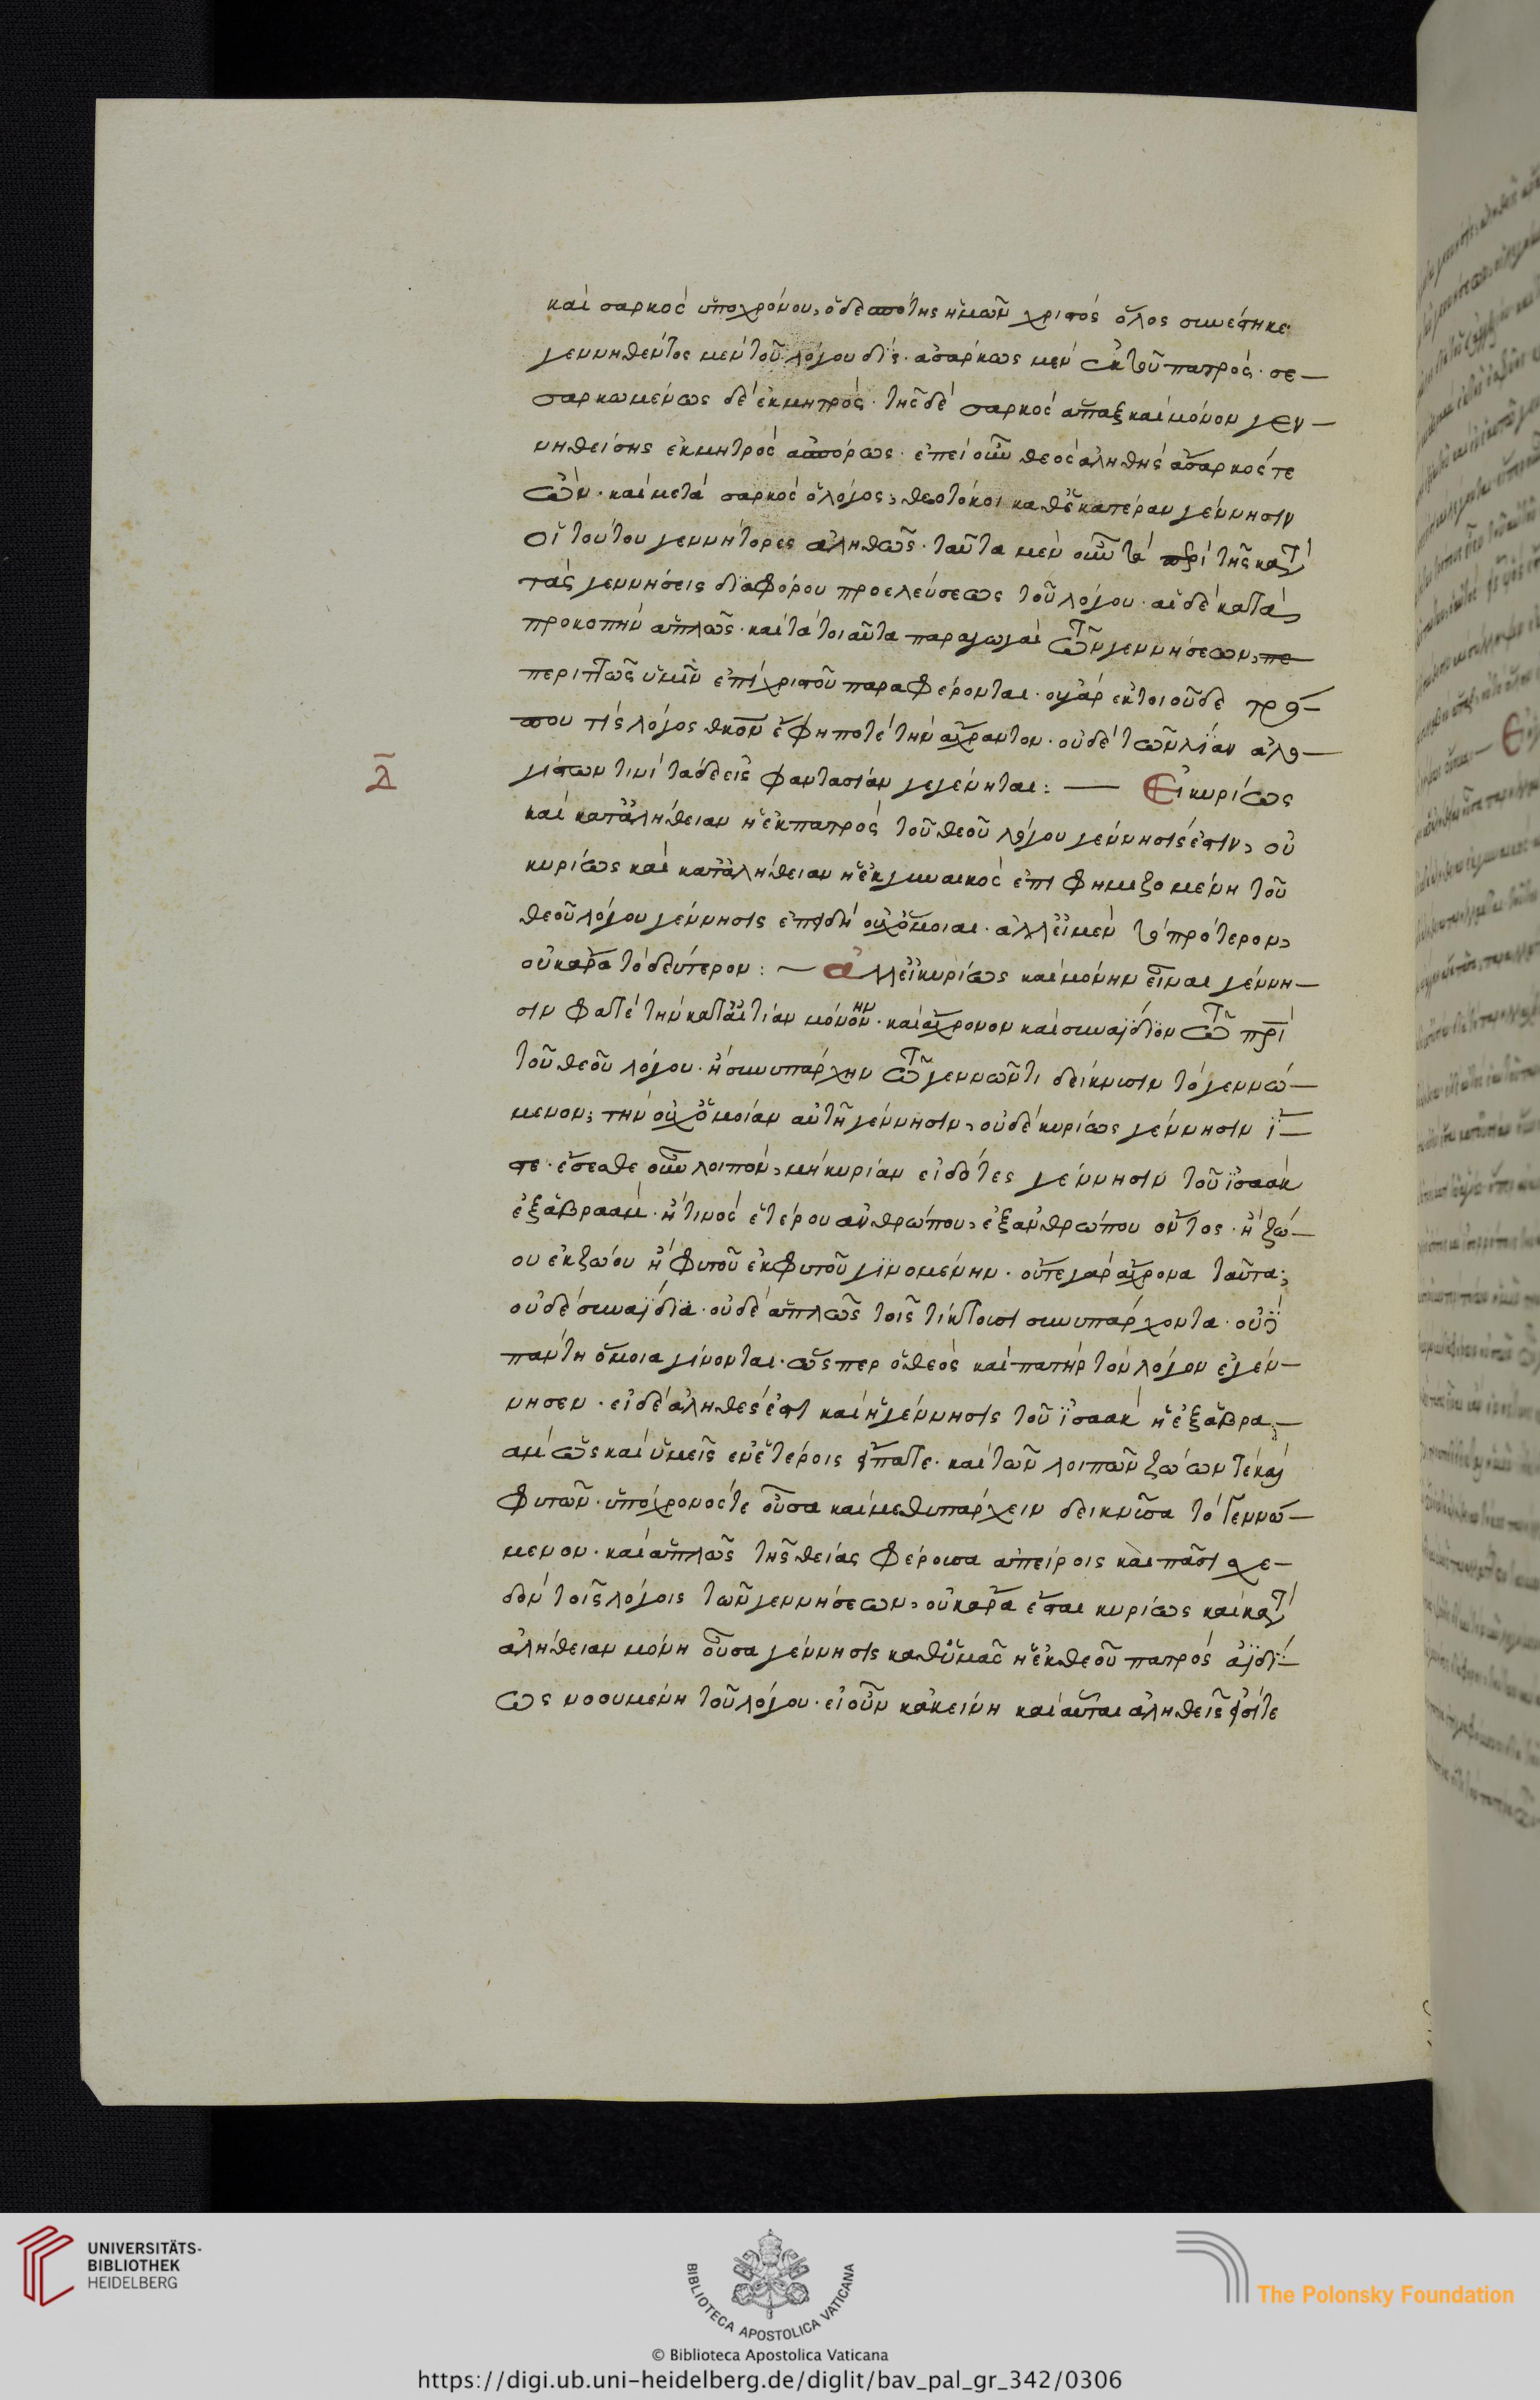 καὶ σαρκὸς ὑποχρόνου, ὁ δεσπότης ἡμῶν χριστὸς ὅλος συνέστηκε
γεννηθέντος μὲν τοῦ λόγου δὶς· ἀσάρκως μὲν ἐκ τοῦ πατρός· σε–
σαρκωμένως δὲ ἐκ μητρός· τῆς δὲ σαρκὸς ἅπαξ καὶ μόνον γεν–
νηθείσης ἐκ μητρὸς ἀσπόρως· ἐπεὶ οὖν θεὸς ἀληθὴς ἄσαρκός τε
ὢν· καὶ μετὰ σαρκὸς ὁ λόγος, θεοτόκοι καθ' ἑκατέραν γέννησιν
οἱ τούτου γεννήτορες ἀληθῶς· ταῦτα μὲν οὖν τὰ περὶ τῆς κατὰ
τὰς γεννήσεις διαφόρου προελεύσεως τοῦ λόγου· αἱ δὲ κατὰ
προκοπὴν ἁπλῶς· καὶ τὰ τοιαῦτα παραγωγαὶ τῶν γεννήσεων, πε
περιττῶς ὑμῖν ἐπὶ χριστοῦ παραφέρονται· οὐ γὰρ ἐκ τοιοῦδε τρό–
που τὶς λόγος θκον ἔφη ποτὲ τὴν ἄχραντον· οὐδὲ τῶν λίαν ἀλο–
γίστων τινὶ τάδε εἰς φαντασίαν γεγένηται: — Εἰ κυρίως
λ
καὶ κατ' ἀλήθειαν ἡ ἐκ πατρὸς τοῦ θεοῦ λόγου γέννησίς ἐστιν, οὐ
κυρίως καὶ κατ' ἀλήθειαν ἡ ἐκ γυναικὸς ἐπιφημιζομένη τοῦ
θεοῦ λόγου γέννησις ἐπειδὴ οὐχ ὅμοιαι· ἀλλ' εἰ μὲν τὸ πρότερον,
οὐκ ἄρα τὸ δεύτερον: — ἀλλ' εἰ κυρίως καὶ μόνην εἶναι γέννη–
σιν φατὲ τὴν κατ' αἰτίαν μόνον ην· καὶ ἄχρονον καὶ συναΐδιον τῷ πρι
τοῦ θεοῦ λόγου· ἢ συνυπάρχην τῷ γεννῶντι δείκνυσιν τὸ γεννώ–
μενον, τὴν οὐχ ὁμοίαν αὐτῇ γέννησιν, οὐδὲ κυρίως γέννησιν ἴ–
στε· ἔσεσθε οὖν λοιπὸν, μὴ κυρίαν εἰδότες γέννησιν τοῦ ἰσαὰκ
ἐξ ἀβραάμ· ἤ τινος ἑτέρου ἀνθρώπου, ἐξ ἀνθρώπου ὄντος· ἢ ζώ–
ου ἐκ ζώου ἢ φυτοῦ ἐκ φυτοῦ γινομένην· οὔτε γὰρ ἄχρονα ταῦτα,
οὐδὲ συναΐδια· οὐδὲ ἁπλῶς τοῖς τίκτουσι συνυπάρχοντα· οὐδὲ
πάντη ὅμοια γίνονται· ὥσπερ ὁ θεὸς καὶ πατὴρ τὸν λόγον ἐγέν–
νησεν· εἰ δὲ ἀληθές ἐστι καὶ ἡ γέννησις τοῦ ἰσαὰκ ἡ ἐξ ἀβρα–
ὰμ ὡς καὶ ὑμεῖς ἐν ἑτέροις εἴπατε· καὶ τῶν λοιπῶν ζώων τὲ καὶ
φυτῶν· ὑπόχρονός τε οὖσα καὶ μεθυπάρχειν δεικνῦσα τὸ γεννώ–
μενον· καὶ ἁπλῶς τῆς θείας φέρουσα ἀπείροις καὶ πᾶσι σχε–
δὸν τοῖς λόγοις τῶν γεννήσεων, οὐκ ἄρα ἔσται κυρίως καὶ κατὰ
ἀλήθειαν μόνη οὖσα γέννησις καθ' ὑμᾶς ἡ ἐκ θεοῦ πατρὸς ἀϊδί–
ως νοουμένη τοῦ λόγου· εἰ οὖν κἀκείνη καὶ αὗται ἀληθεῖς εἰσί τε
UNIVERSITÄTS-
BIBLIOTHEK
HEIDELBERG
BIBLIOTECA APOSTOLICA VATICANA
The Polonsky Foundation
© Biblioteca Apostolica Vaticana
https://digi.ub.uni-heidelberg.de/diglit/bav_pal_gr_342/0306